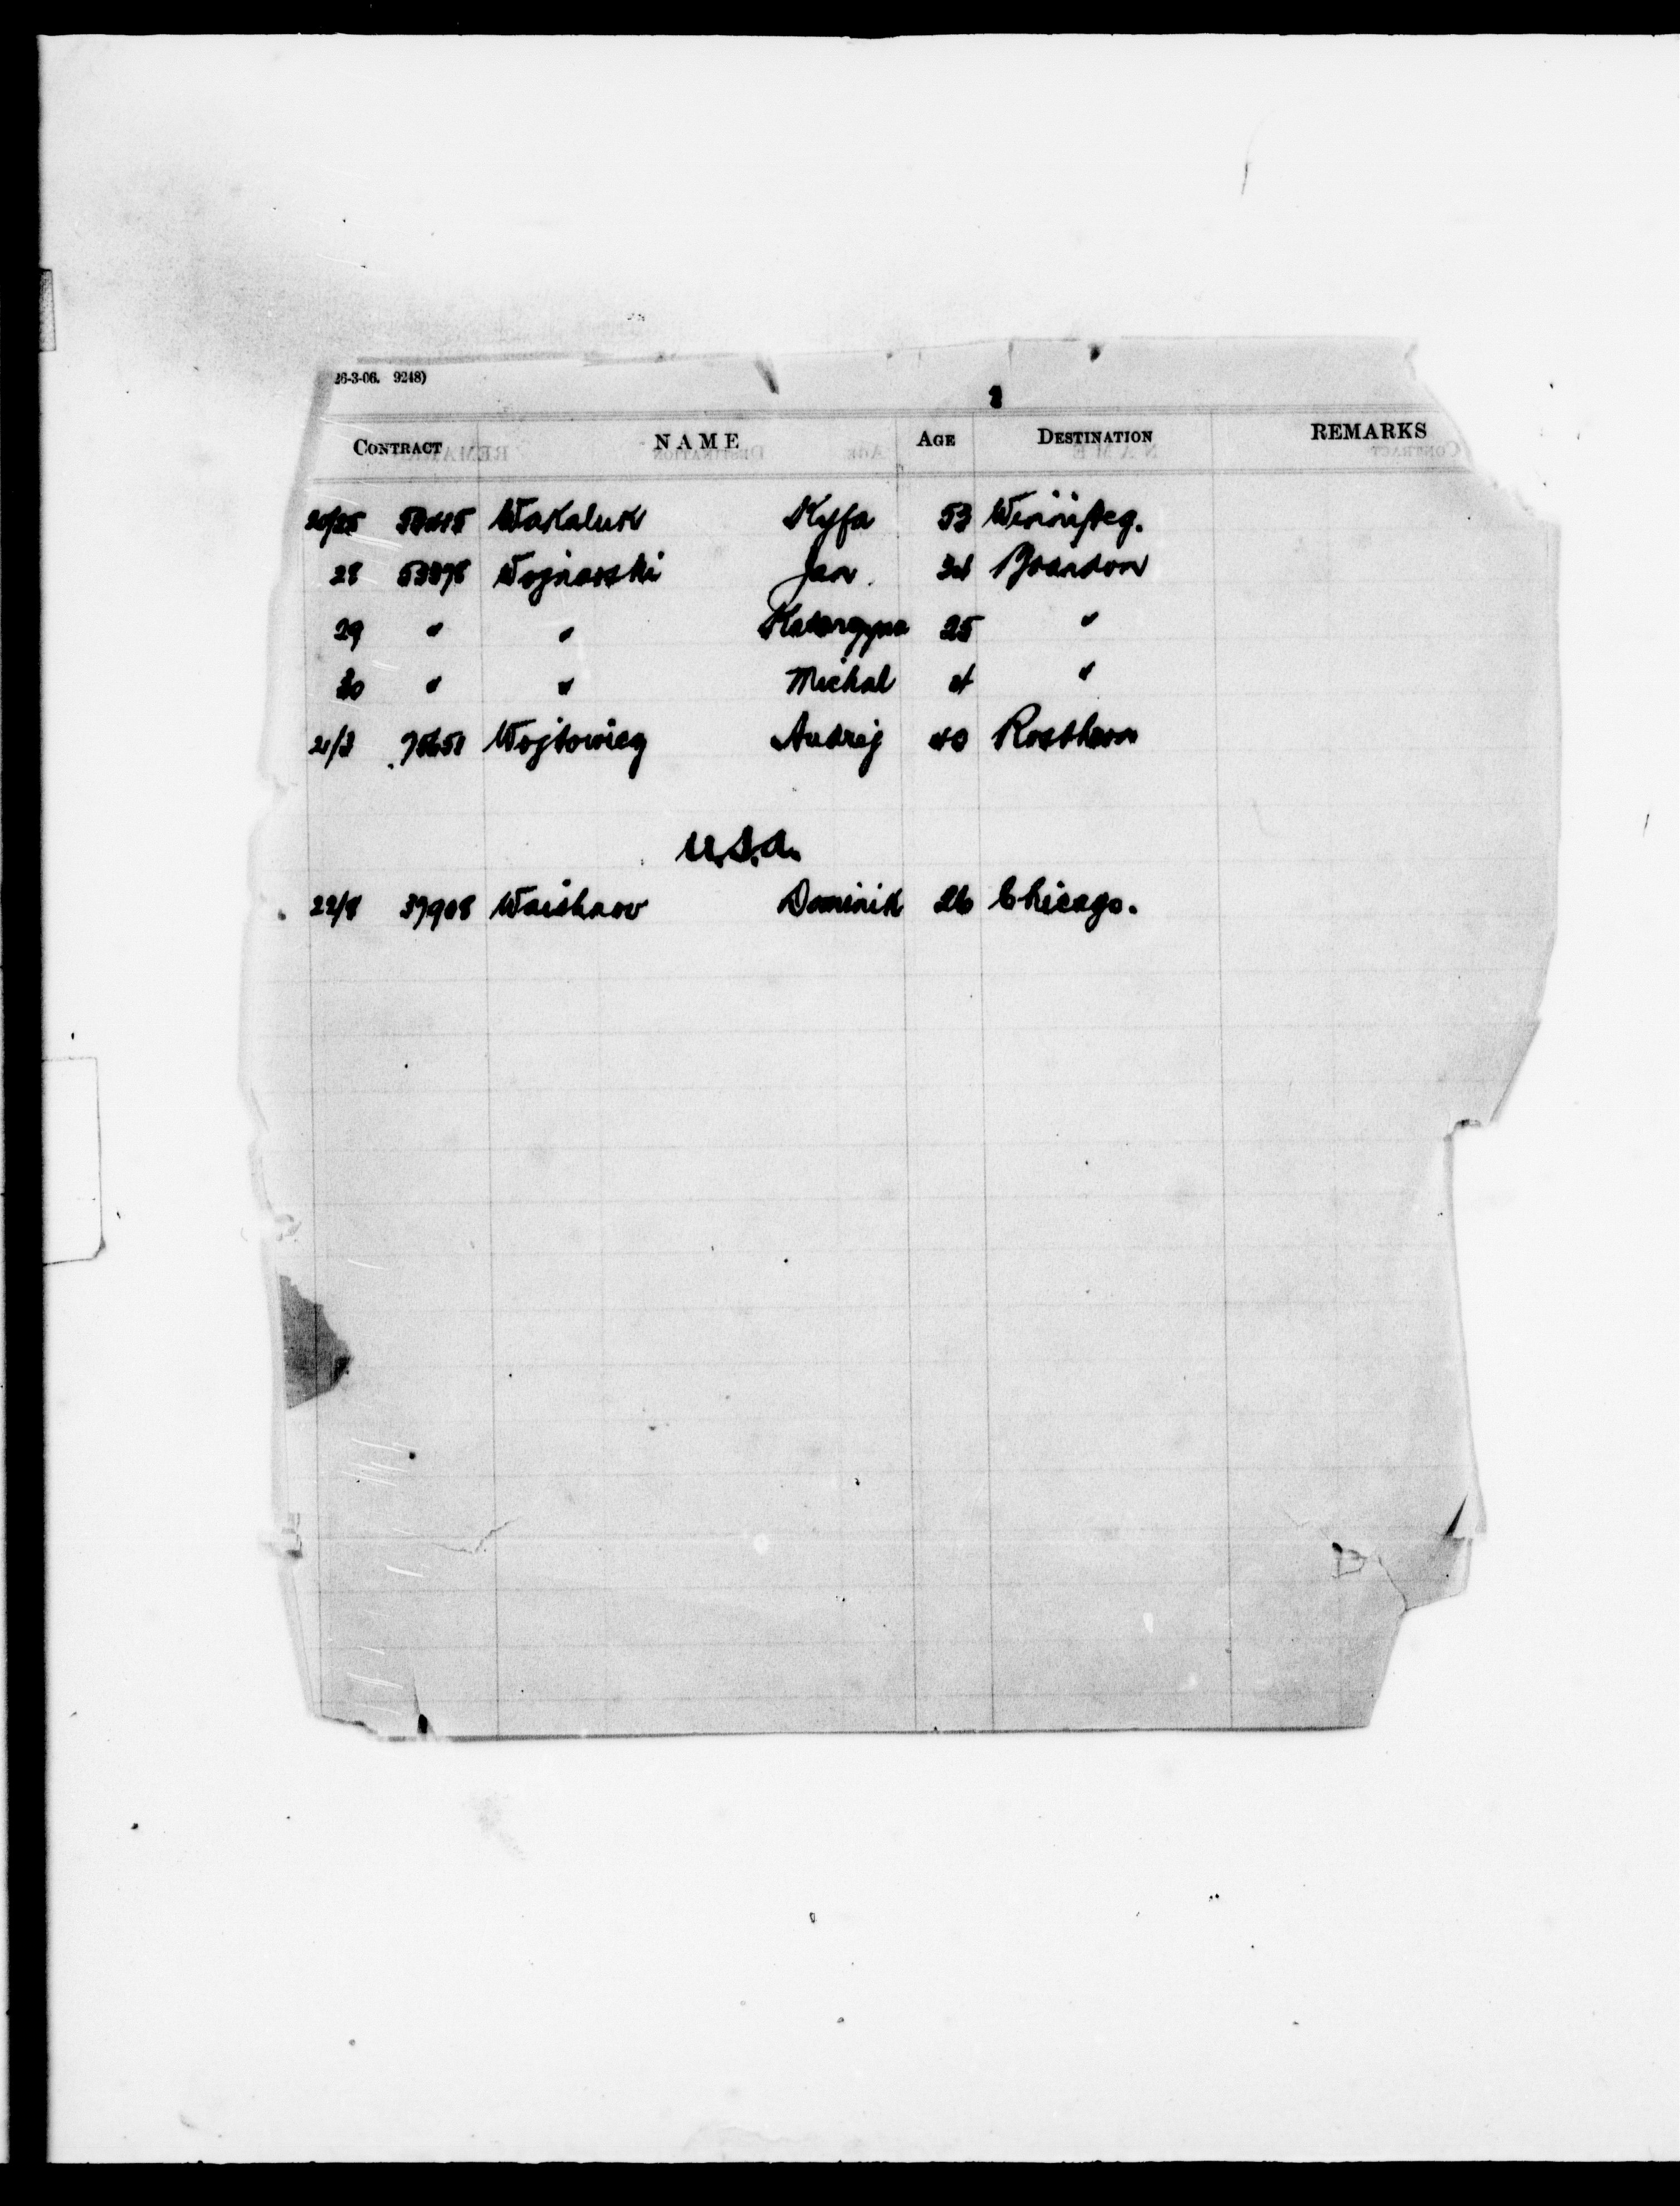 26-3-06. 9248)
CONTRACT NAME AGE DESTINATION REMARKS
20/25 Wakaluk Kyfa 53 Winnipeg.
28 53378 Wojnarski Jan 34 Brandon
29 " " Katarzyna 25 "
30 " " Michal 4 "
21/3 75651 Wojtowicz Andrej 40 Rosthern
U.S.A.
22/8 37908 Dominik 26 Chicago.